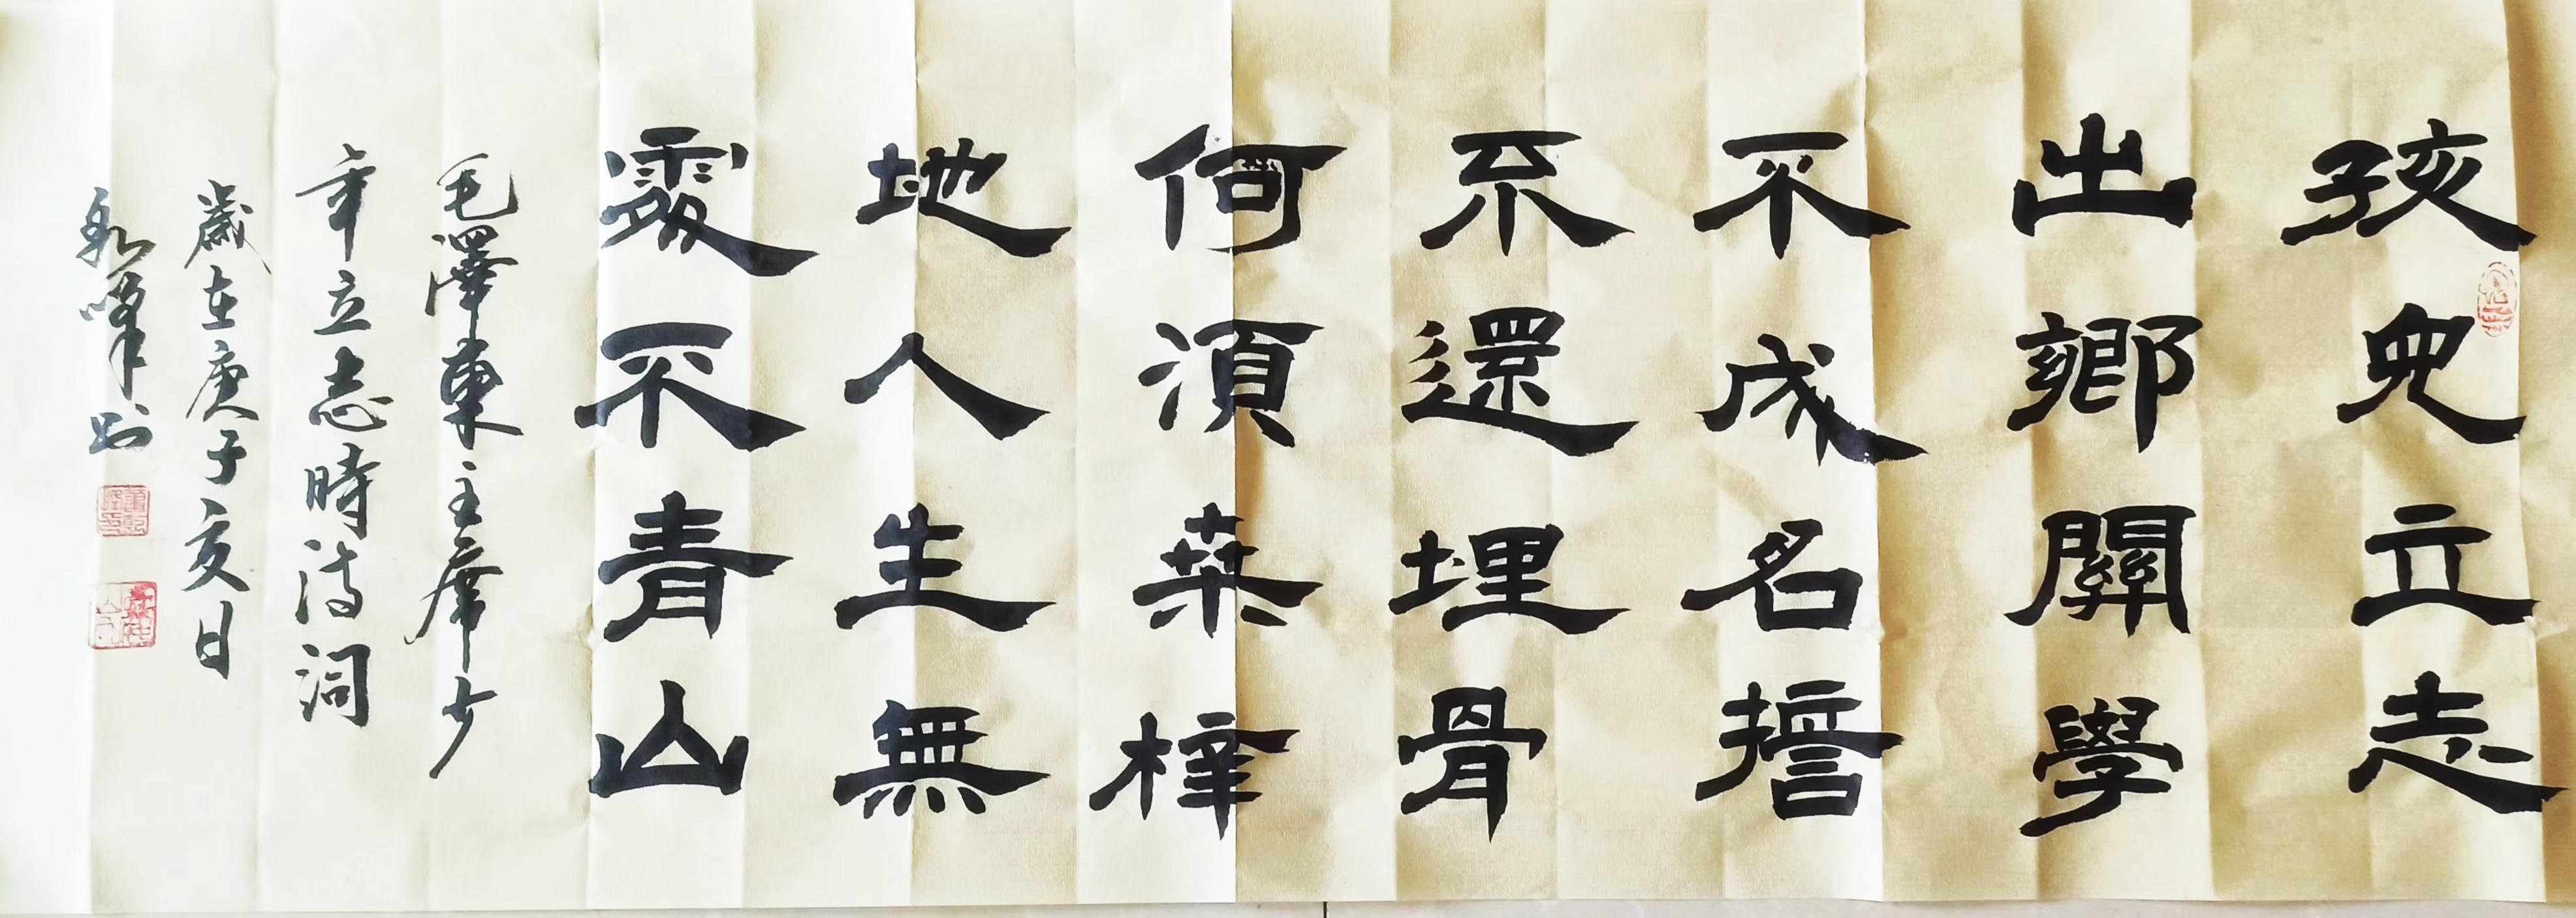 孩兒立志
出鄉關學
不成名誓
不還埋骨
何須桑梓
地人生無
處不青山
毛澤東主席少
年立志時詩詞
歲在庚子亥日